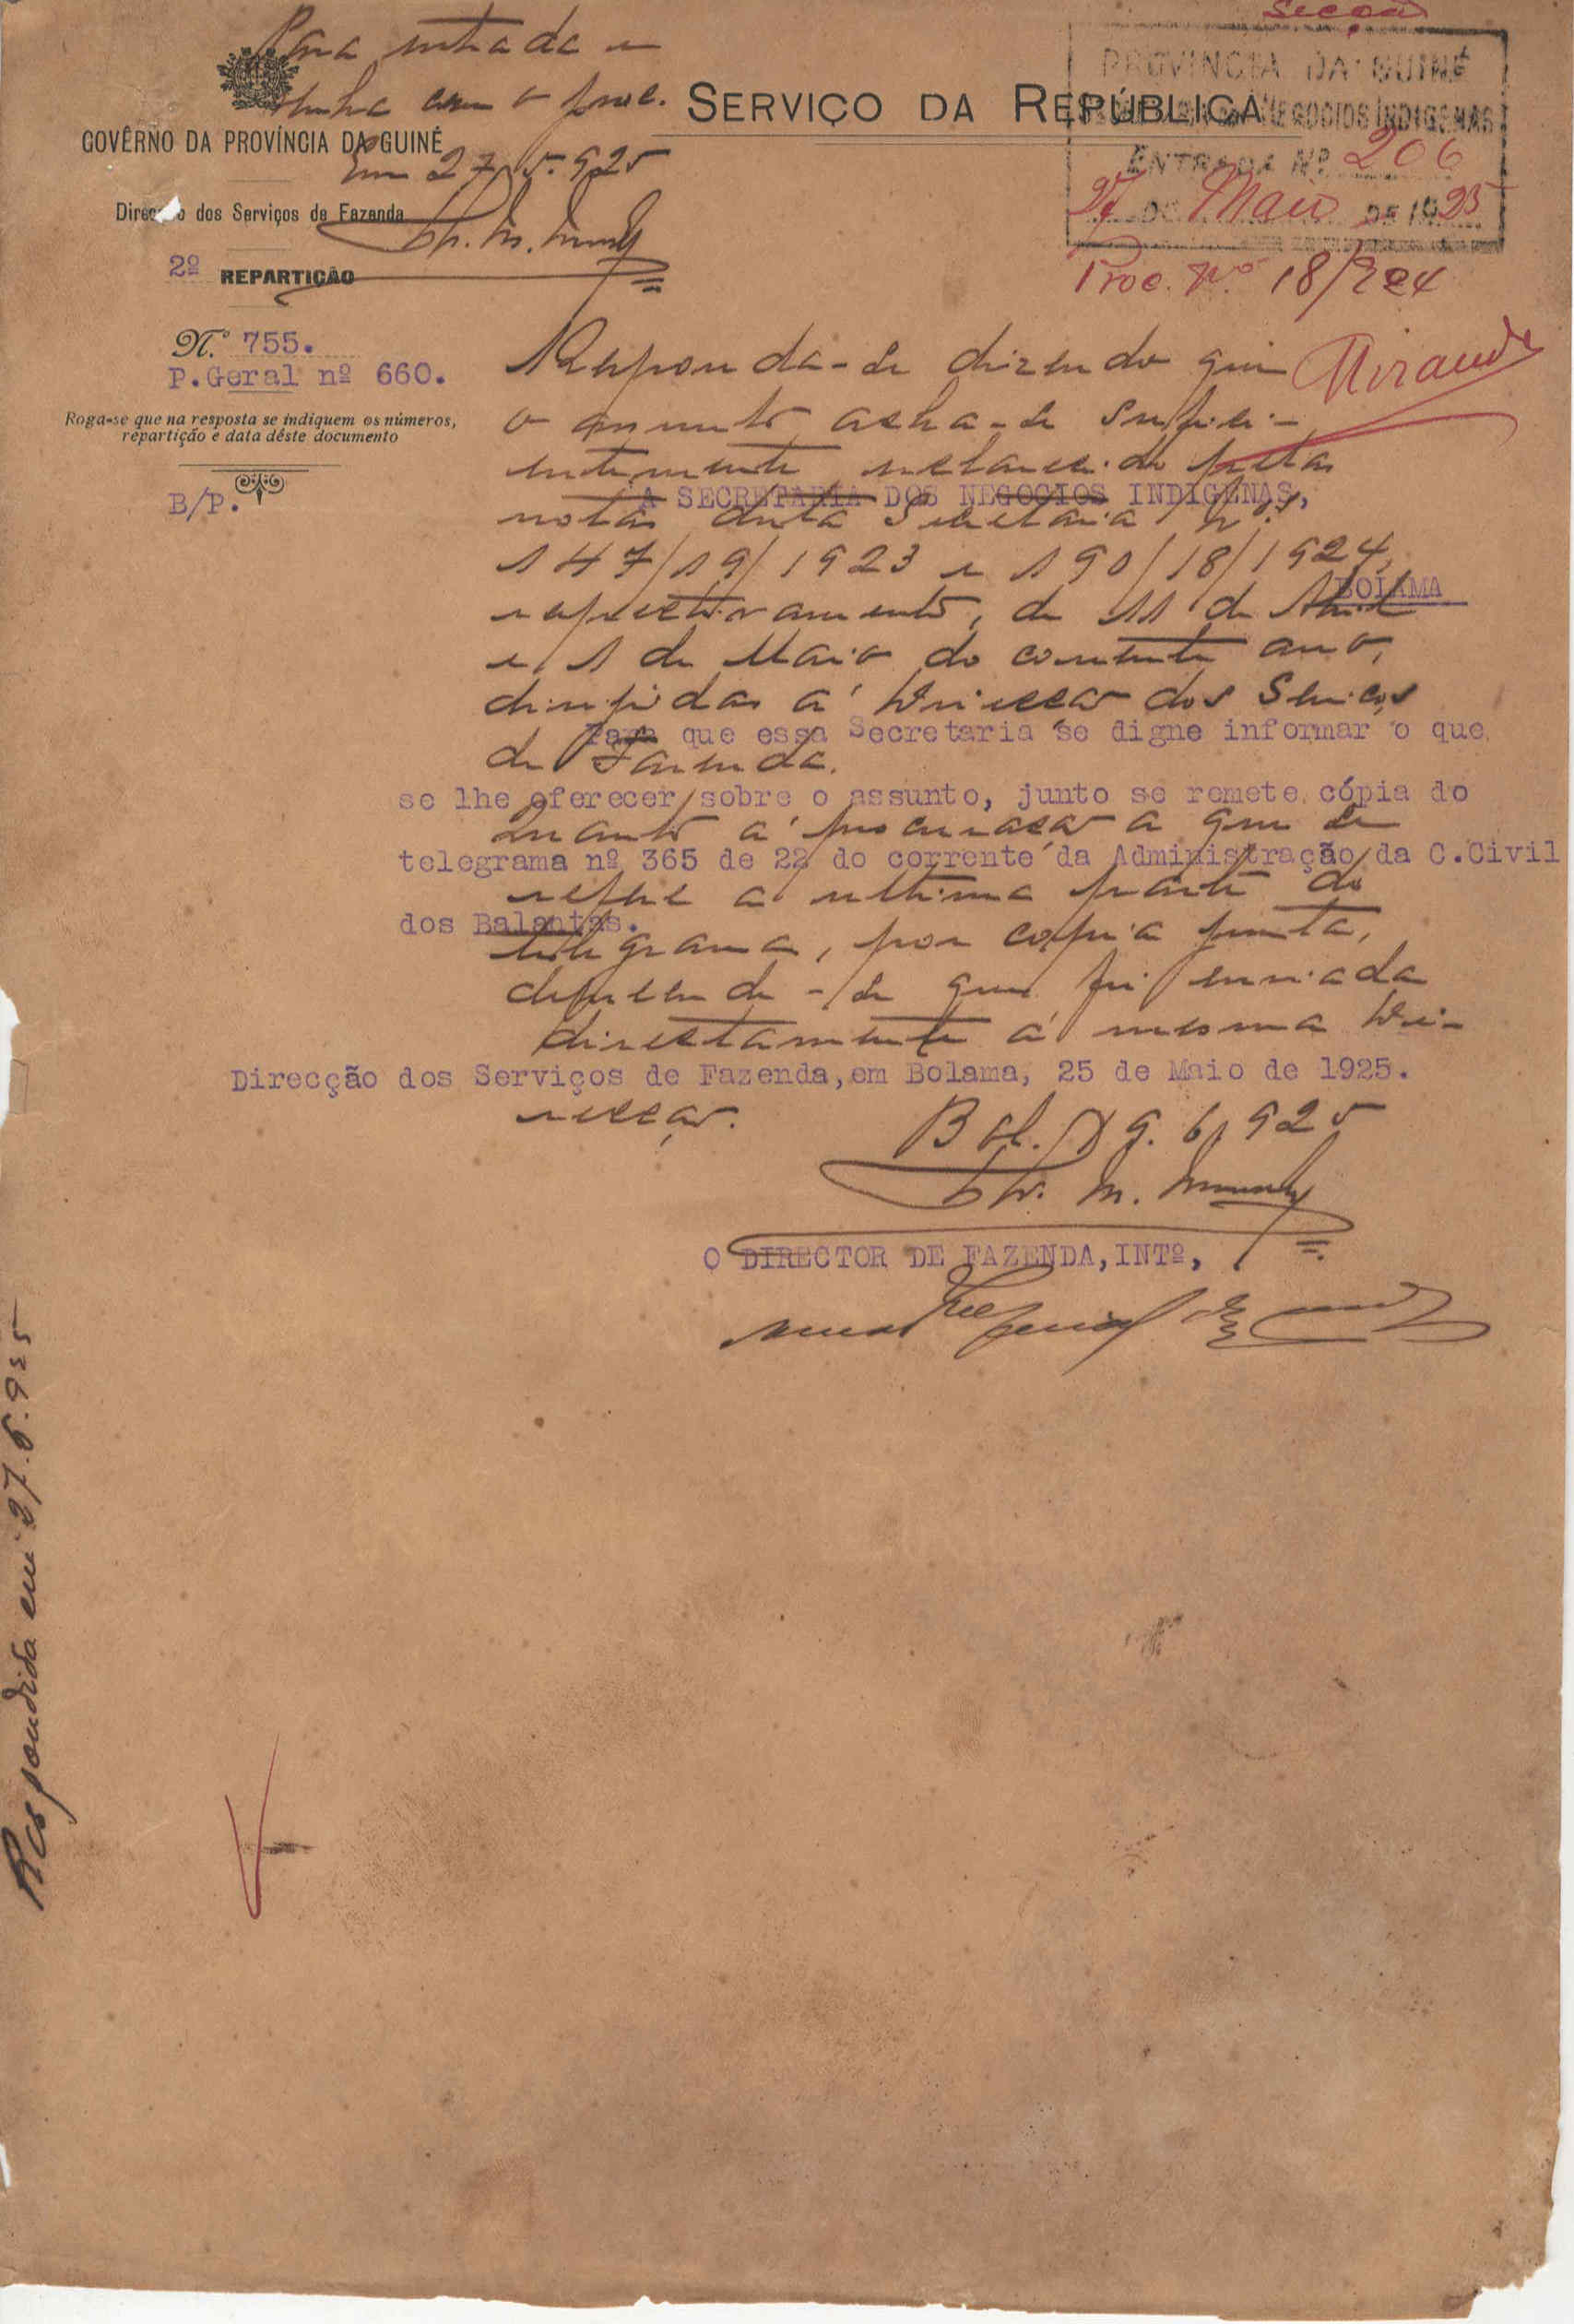 Secção
Para entrada e
venha com o proc.
Em 27.5.925
SERVIÇO DA REPÚBLICA
GOVÊRNO DA PROVÍNCIA DA GUINÉ
Direcção dos Serviços de Fazenda
2º REPARTIÇÃO
PROVINCIA DA GUINÉ
NEGOCIOS INDIGENAS
ENTRADA Nº 206
27 DE Maio DE 1925
Proc. Nº 18/924
Miranda
N.º 755.
P.Geral nº 660.
Roga-se que na resposta se indiquem os números,
repartição e data dêste documento
B/P.
Responda-se dizendo que
o assunto acha-se sufici-
entemente esclarecido pelas
notas desta Secretaria Nos
147/19/1923 e 190/18/1924,
respectivamente, de 11 de Abril
e 1 de Maio do corrente ano,
dirigidas á Direcção dos Serviços
de Fazenda.
Quanto á procuração a que se
refere a ultima parte do
telegrama, por copia junta,
depreende-se que foi enviada
directamente á mesma Di-
recção.
Bol. 9.6.925
A SECRETARIA DOS NEGOCIOS INDIGENAS,
BOLAMA
Para que essa Secretaria se digne informar o que
se lhe oferecer sobre o assunto, junto se remete cópia do
telegrama nº 365 de 22 do corrente da Administração da C.Civil
dos Balantas.
Direcção dos Serviços de Fazenda, em Bolama, 25 de Maio de 1925.
O DIRECTOR DE FAZENDA, INTº,
Respondida em 27.6.925